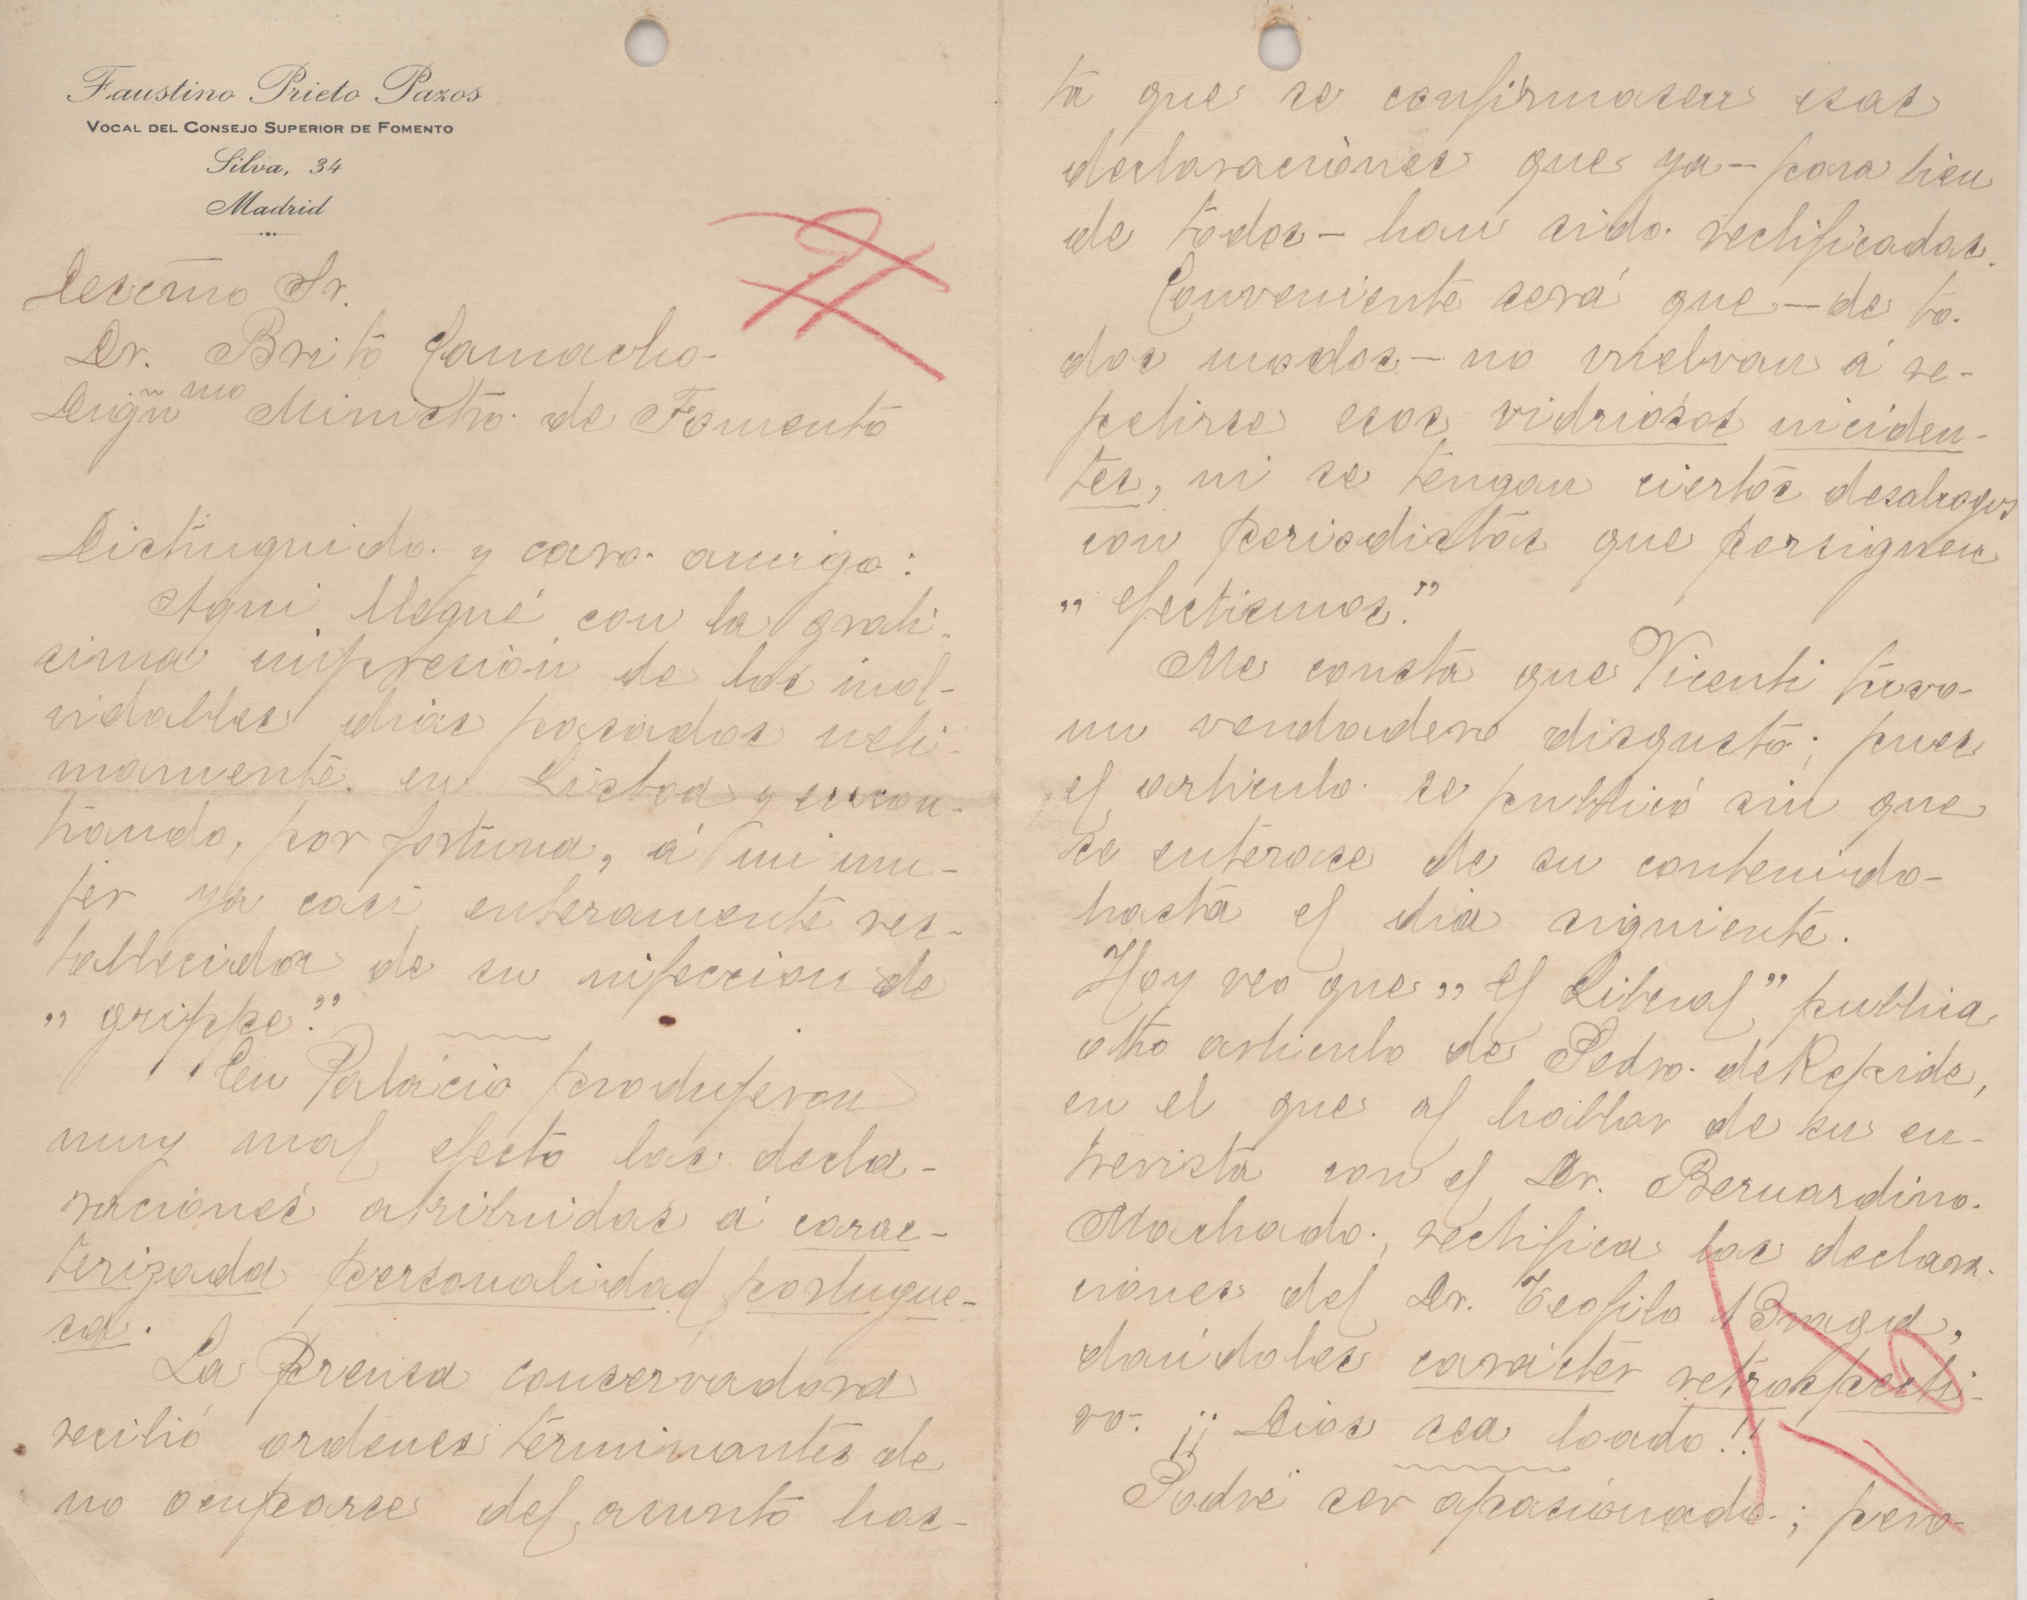 Faustino Prieto Pazos
VOCAL DEL CONSEJO SUPERIOR DE FOMENTO
Silva, 34
Madrid
Excmo Sr.
Dr. Brito Camacho
Dignmo Ministro de Fomento
Distinguido y caro amigo:
Aqui llegué con la grati-
sima impresión de los inol-
vidables dias pasados ulti-
mamente en Lisboa y encon-
trando, por fortuna, á mi mu-
jer ya casi enteramente res-
tablecida de su infeccion de
"grippe."
En Palacio produjeron
muy mal efecto las decla-
raciones atribuidas á carac-
terizada personalidad portugue-
sa.
La Prensa conservadora
recibió ordenes terminantes de
no ocuparse del asunto has-
ta que se confirmasen esas
declaraciones que ya - para bien
de todos - han sido rectificadas.
Conveniente será que - de to-
dos modos - no vuelvan á re-
petirse esos vidriosos inciden-
tes, ni se tengan ciertos desahogos
con periodistas que persiguen
"efectismos."
Me consta que Vicenti tuvo
un verdadero disgusto; pues
el articulo se publicó sin que
se enterase de su contenido
hasta el dia siguiente.
Hoy veo que "El Liberal" publica
otro articulo de Pedro de Repide,
en el que al hablar de su en-
trevista con el Dr. Bernardino
Machado, rectifica las declara-
ciones del Dr. Teofilo Braga,
dandoles carácter retrospecti-
vo. ¡¡Dios sea loado!!
Podré ser apasionado; pero